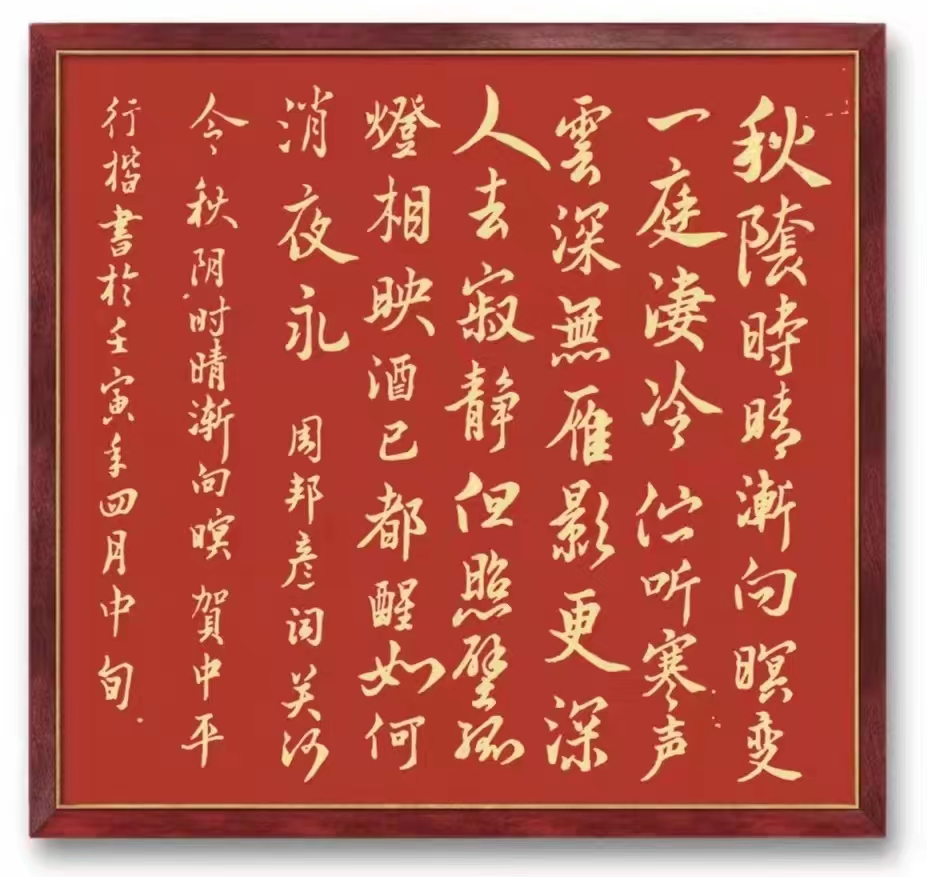 秋隂時晴漸向暝变
一庭淒冷伫听寒声
雲深無雁影更深
人去寂静但照壁孤
燈相映酒已都醒如何
消夜永 周邦彦词关河
令秋阴时晴渐向暝 賀中平
行楷書於壬寅年四月中旬